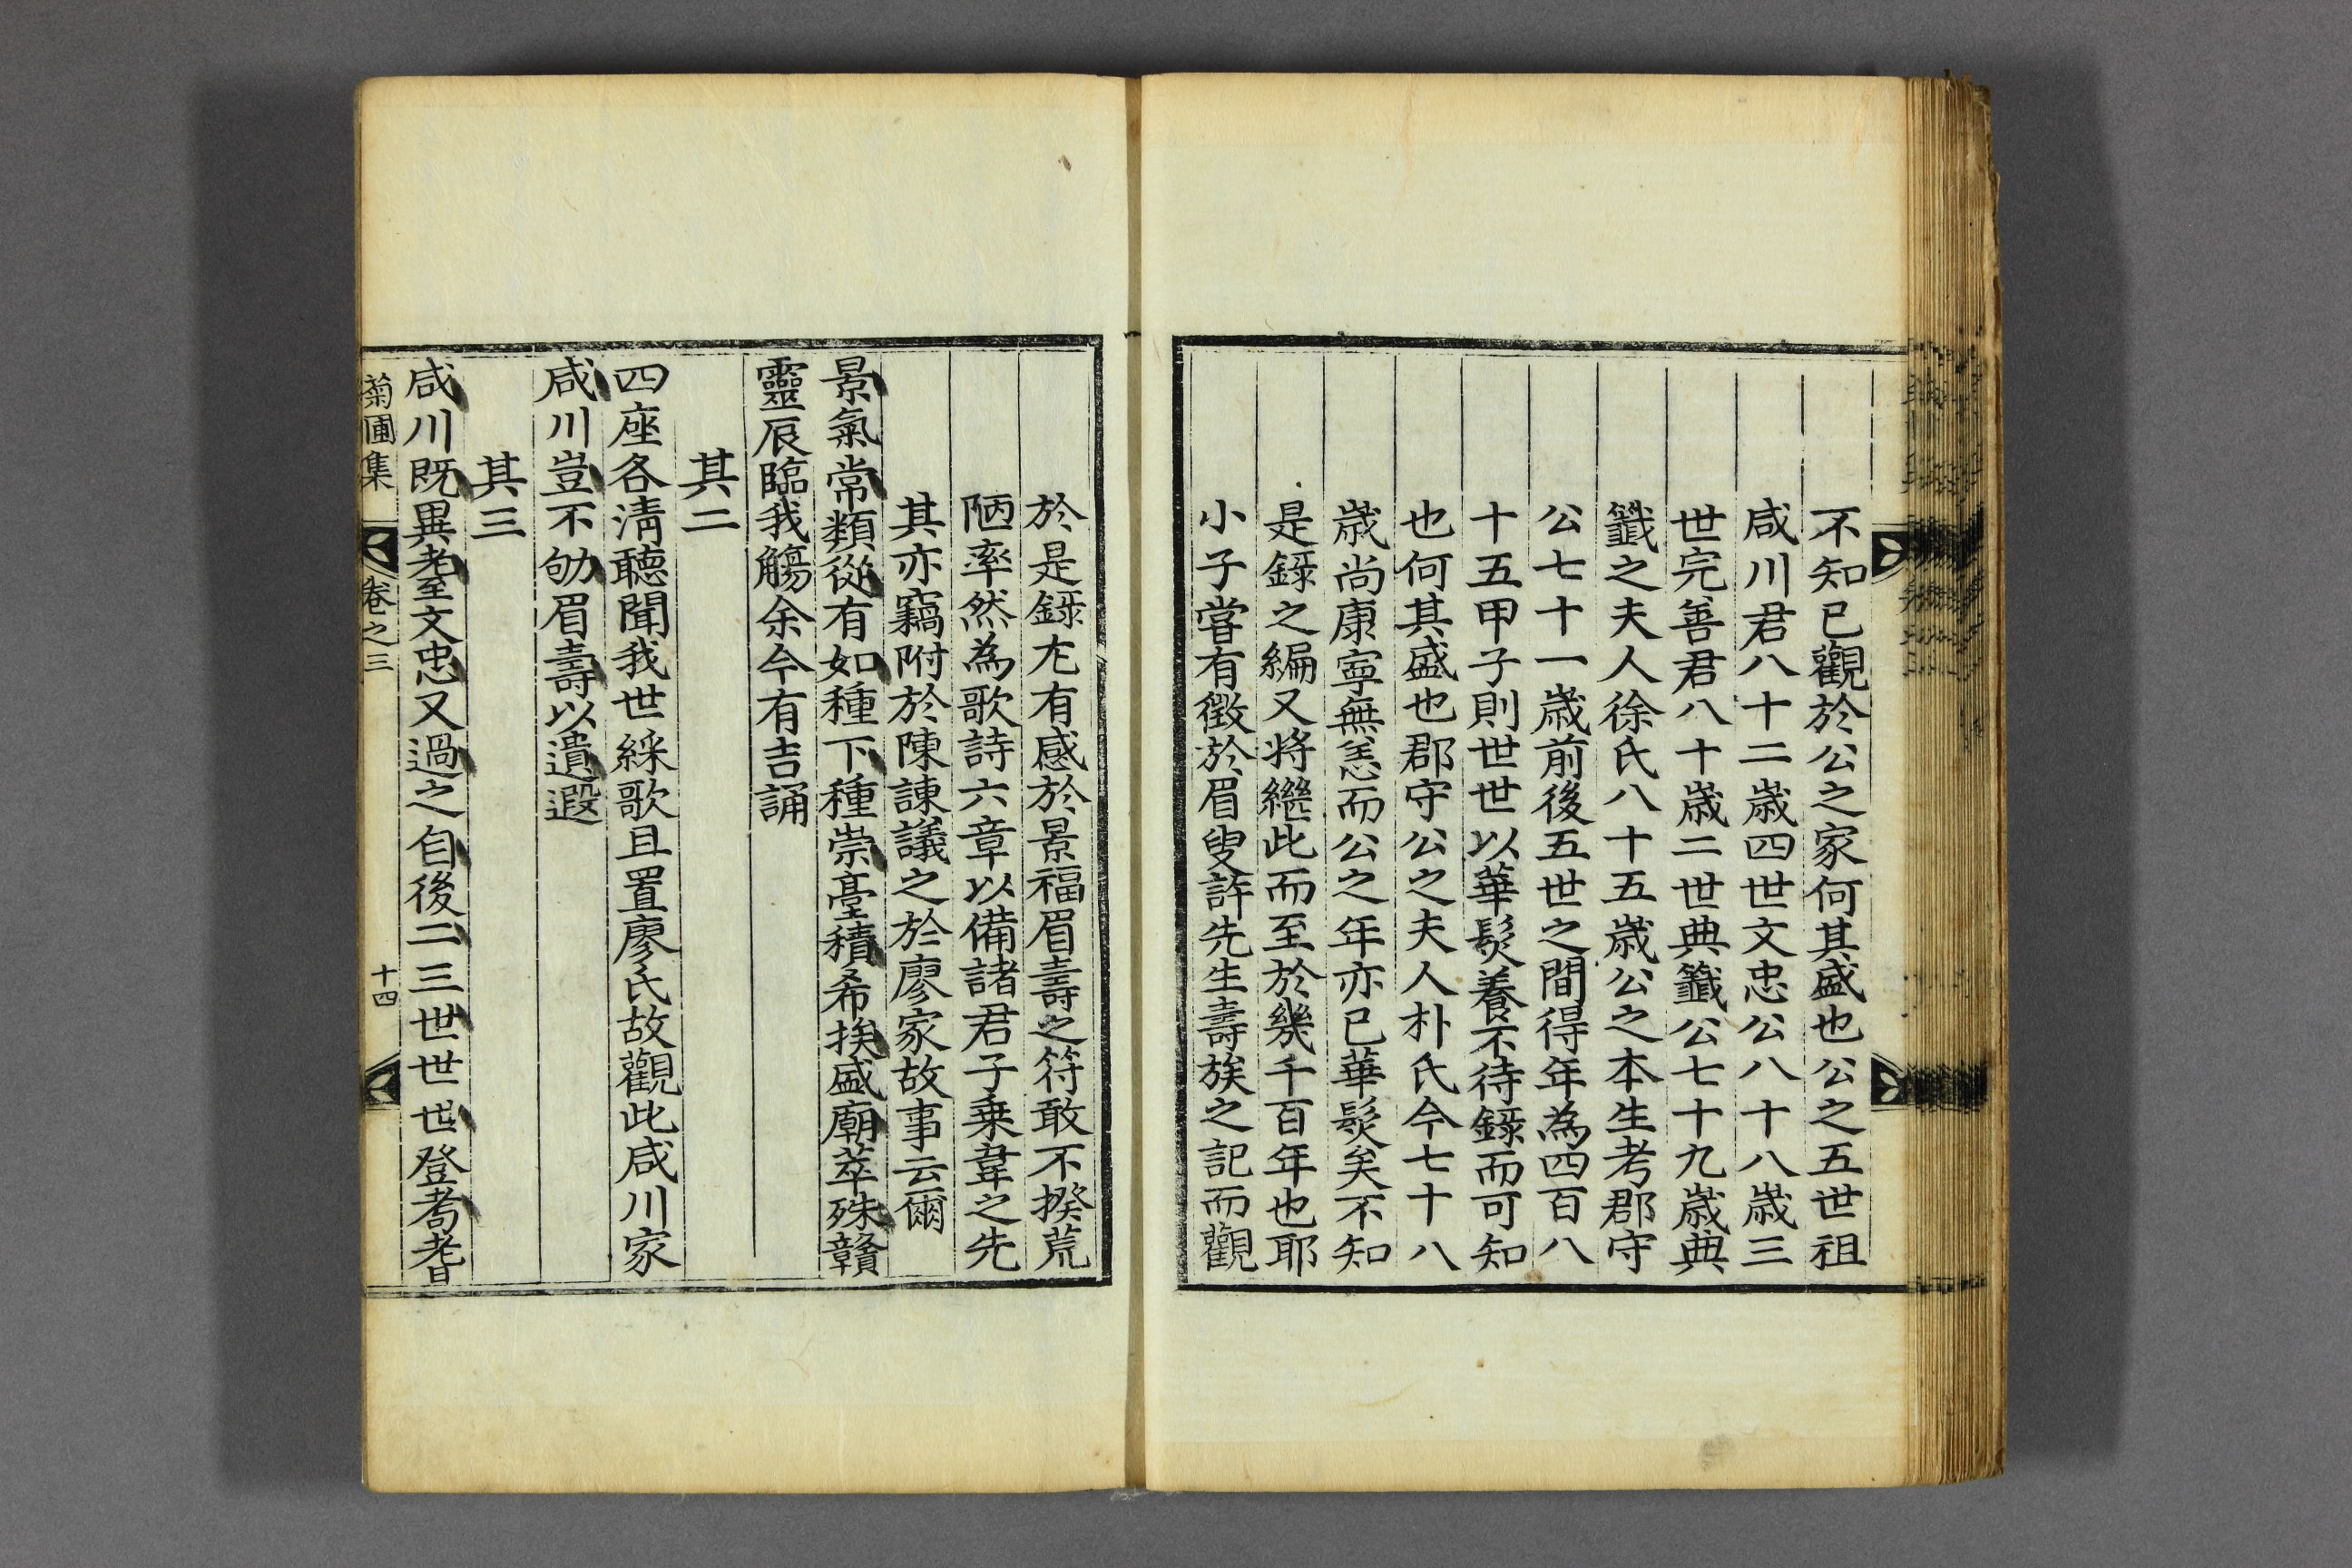 不知已觀於公之家何其盛也公之五世祖
咸川君八十二歲四世文忠公八十八歲三
世完善君八十歲二世典籤公七十九歲典
籤之夫人徐氏八十五歲公之本生考郡守
公七十一歲前後五世之間得年為四百八
十五甲子則世世以華髮養不待錄而可知
也何其盛也郡守公之夫人朴氏今七十八
歲尚康寧無恙而公之年亦已華髮矣不知
是錄之編又將繼此而至於幾千百年也耶
小子嘗有徵於眉叟許先生壽族之記而觀
於是錄尤有感於景福眉壽之符敢不揆荒
陋率然為歌詩六章以備諸君子乗韋之先
其亦竊附於陳諫議之於廖家故事云爾
景氣常類從有如種下種崇臺積希挨盛廟萃殊贛
靈辰臨我觴余今有吉誦
其二
四座各淸聽聞我世綵歌且置廖氏故觀此咸川家
咸川豈不劬眉壽以遺遐
其三
咸川旣異耊文忠又過之自後二三世世世登耇耆
菊圃集
卷之三
十四